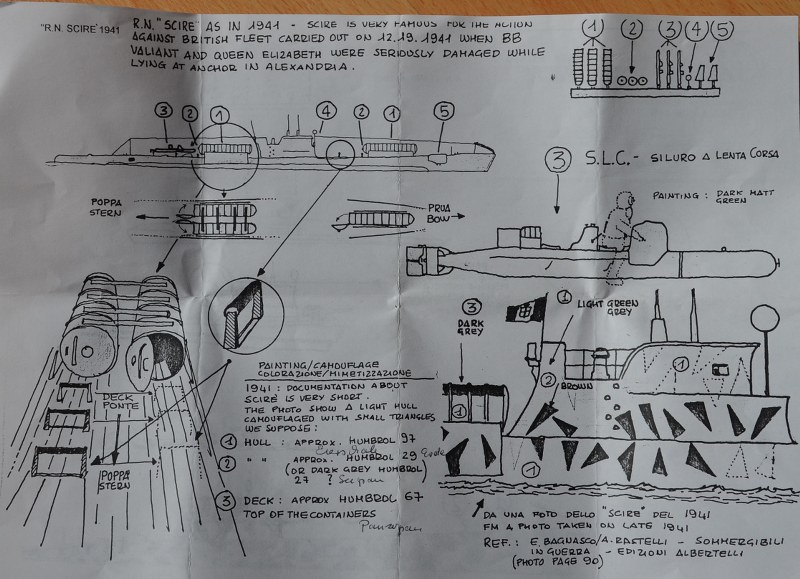 "R.N. SCIRE' 1941
R.N. "SCIRE" AS IN 1941 - SCIRE IS VERY FAMOUS FOR THE ACTION
AGAINST BRITISH FLEET CARRIED OUT ON 12.19.1941 WHEN BB
VALIANT AND QUEEN ELIZABETH WERE SERIOUSLY DAMAGED WHILE
LYING AT ANCHOR IN ALEXANDRIA.
1 2 3 4 5
3 2 1 4 2 1 5
3 S.L.C. - SILURO A LENTA CORSA
PAINTING: DARK MATT
GREEN
POPPA
STERN
PRUA
BOW
3
DARK
GREY
1 LIGHT GREEN
GREY
2
BROWN
1
1
1
DECK
PONTE
POPPA
STERN
PAINTING/CAMOUFLAGE
COLORAZIONE/MIMETIZZAZIONE
1941: DOCUMENTATION ABOUT
SCIRE' IS VERY SHORT.
THE PHOTO SHOW A LIGHT HULL
CAMOUFLAGED WITH SMALL TRIANGLES
WE SUPPOSE:
1 HULL: APPROX. HUMBROL 97
2 " " APPROX. HUMBROL 29
(OR DARK GREY HUMBROL
27 ?
3 DECK: APPROX HUMBROL 67
TOP OF THE CONTAINERS
DA UNA FOTO DELLO "SCIRE" DEL 1941
FM A PHOTO TAKEN ON LATE 1941
REF.: E. BAGNASCO/A. RASTELLI - SOMMERGIBILI
IN GUERRA - EDIZIONI ALBERTELLI
(PHOTO PAGE 90)